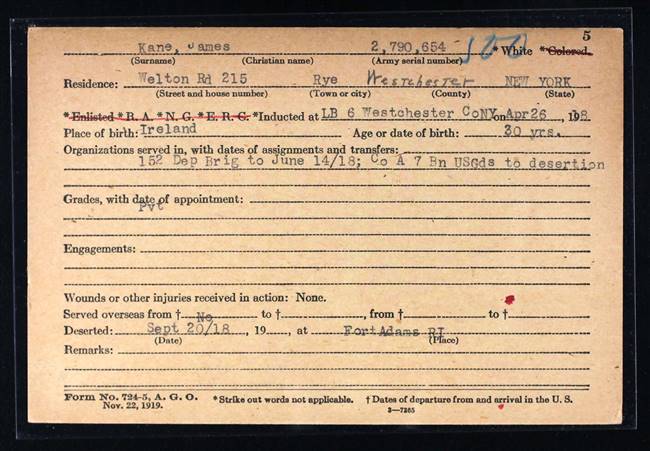 5
Kane, James 2,790,654 * White * Colored.
(Surname) (Christian name) (Army serial number)
Residence: Welton Rd 215 Rye Westchester NEW YORK
(Street and house number) (Town or city) (County) (State)
* Enlisted * R. A. * N. G. * E. R. C. * Inducted at LB 6 Westchester Co NY on Apr 26, 1918
Place of birth: Ireland Age or date of birth: 30 yrs.
Organizations served in, with dates of assignments and transfers:
152 Dep Brig to June 14/18; Co A 7 Bn USGds to desertion
Grades, with date of appointment:
Pvt
Engagements:
Wounds or other injuries received in action: None.
Served overseas from † No to †, from † to †
Deserted: Sept 20/18, 19, at Fort Adams RI
(Date) (Place)
Remarks:
Form No. 724-5, A. G. O. * Strike out words not applicable. † Dates of departure from and arrival in the U. S.
Nov. 22, 1919. 3—7365